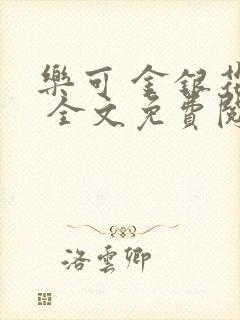 樂可 金銀花
全文免費閱
洛雲卿